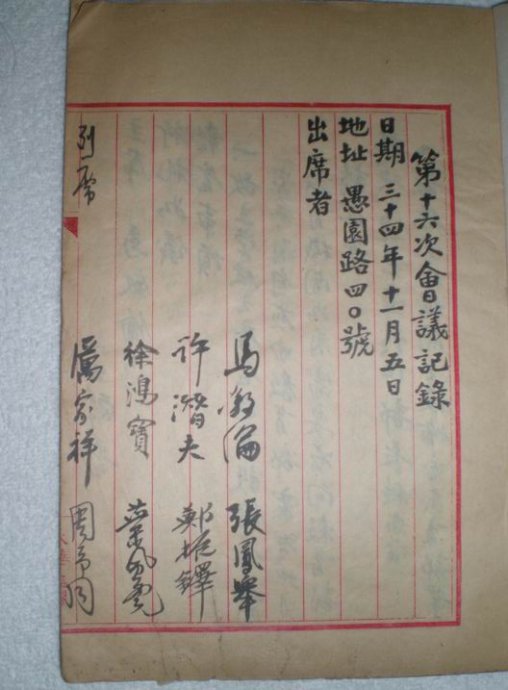 第十六次會議記錄
日期 三十四年十一月五日
地址 愚園路四〇號
出席者
馬叙倫 張鳳舉
許潛夫 鄭振鐸
徐鴻寶 葉風虎
列席 厲家祥 周予同